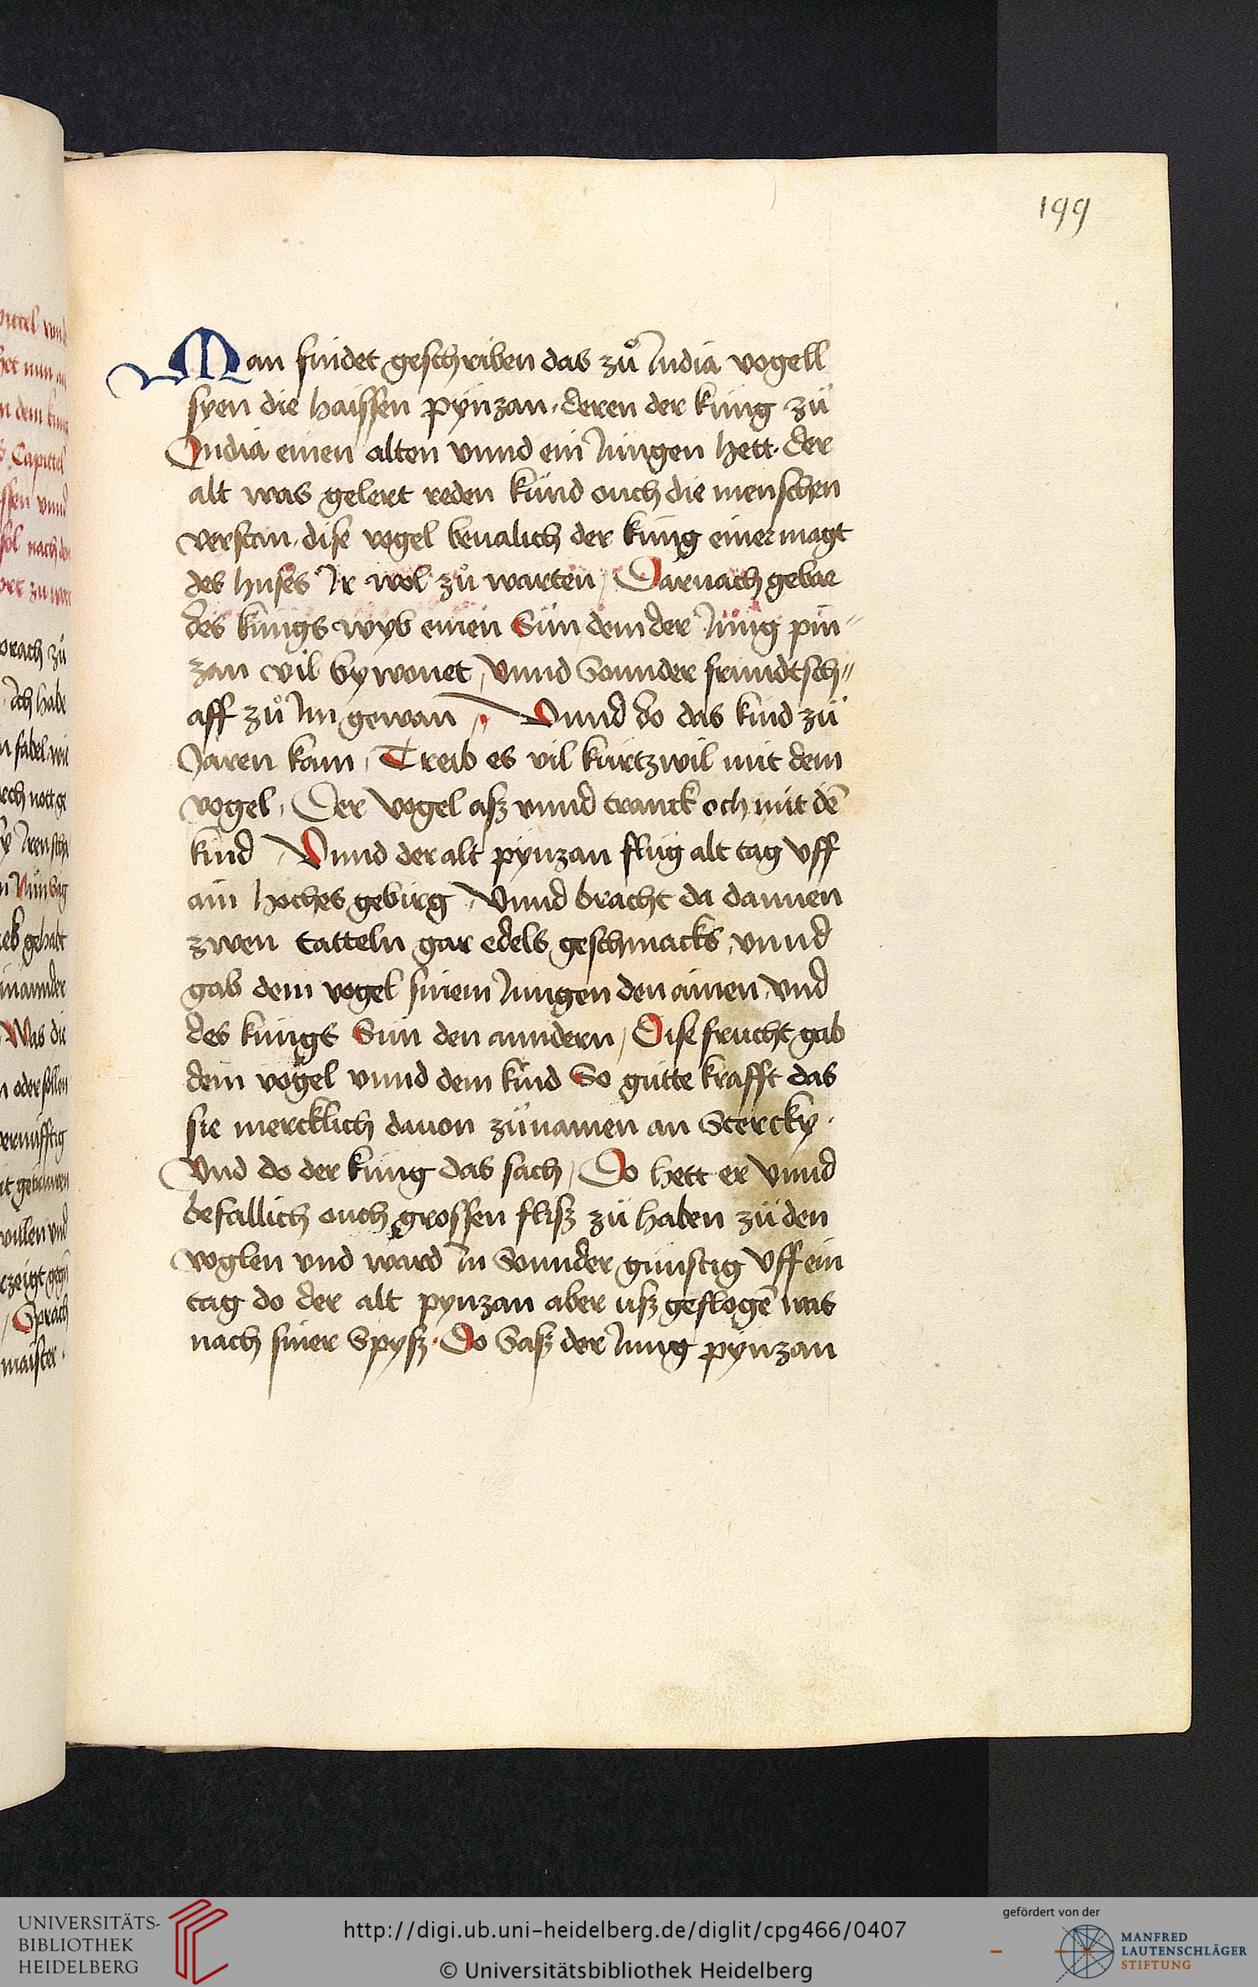 199
Man findet geschriben das zuͦ India vogell
syen die haissen pynzan · deren der küng zü
India einen alten vnnd ein Jungen hett · der
alt was gelert reden kund ouch die menschen
verstan · dise vogel beualich der küng einer magt
des huses Ir wol zuͦ warten / Darnach gebar
des küngs wyb einen Sün dem der Jung pin〃
zan vil bywonet / Vnnd Sonnder frundtsch〃
aff zuͦ Im gewan / Vnnd do das kind zü
Jaren kam / Treib es vil kürtzwil mit dem
vogel / Der Vogel asz vnnd tranck och mit dē
kind Vnnd der alt pynzan flüg alt tag vff
ain hoches gebirg / Vnnd bracht da dannen
zwen tatteln gar edels geschmacks / vnnd
gab dem vogel sinem Jungen den ainen / vnd
des küngs Sun den anndern / Dise frucht gab
dem vogel vnnd dem kind So gütte krafft das
sie mercklich dauon zünamen an Stercky ·
Vnd do der küng das sach / Do hett er vnnd
befallich ouch grossen flisz zü haben zü den
voglen vnd ward In Sonnder günstig Vff ein
tag do der alt pynzan aber usz geflogē was
nach siner Spysz · Do Sasz der Jung pynzan
UNIVERSITÄTS-
BIBLIOTHEK
HEIDELBERG
http://digi.ub.uni-heidelberg.de/diglit/cpg466/0407
© Universitätsbibliothek Heidelberg
gefördert von der
MANFRED
LAUTENSCHLÄGER
STIFTUNG